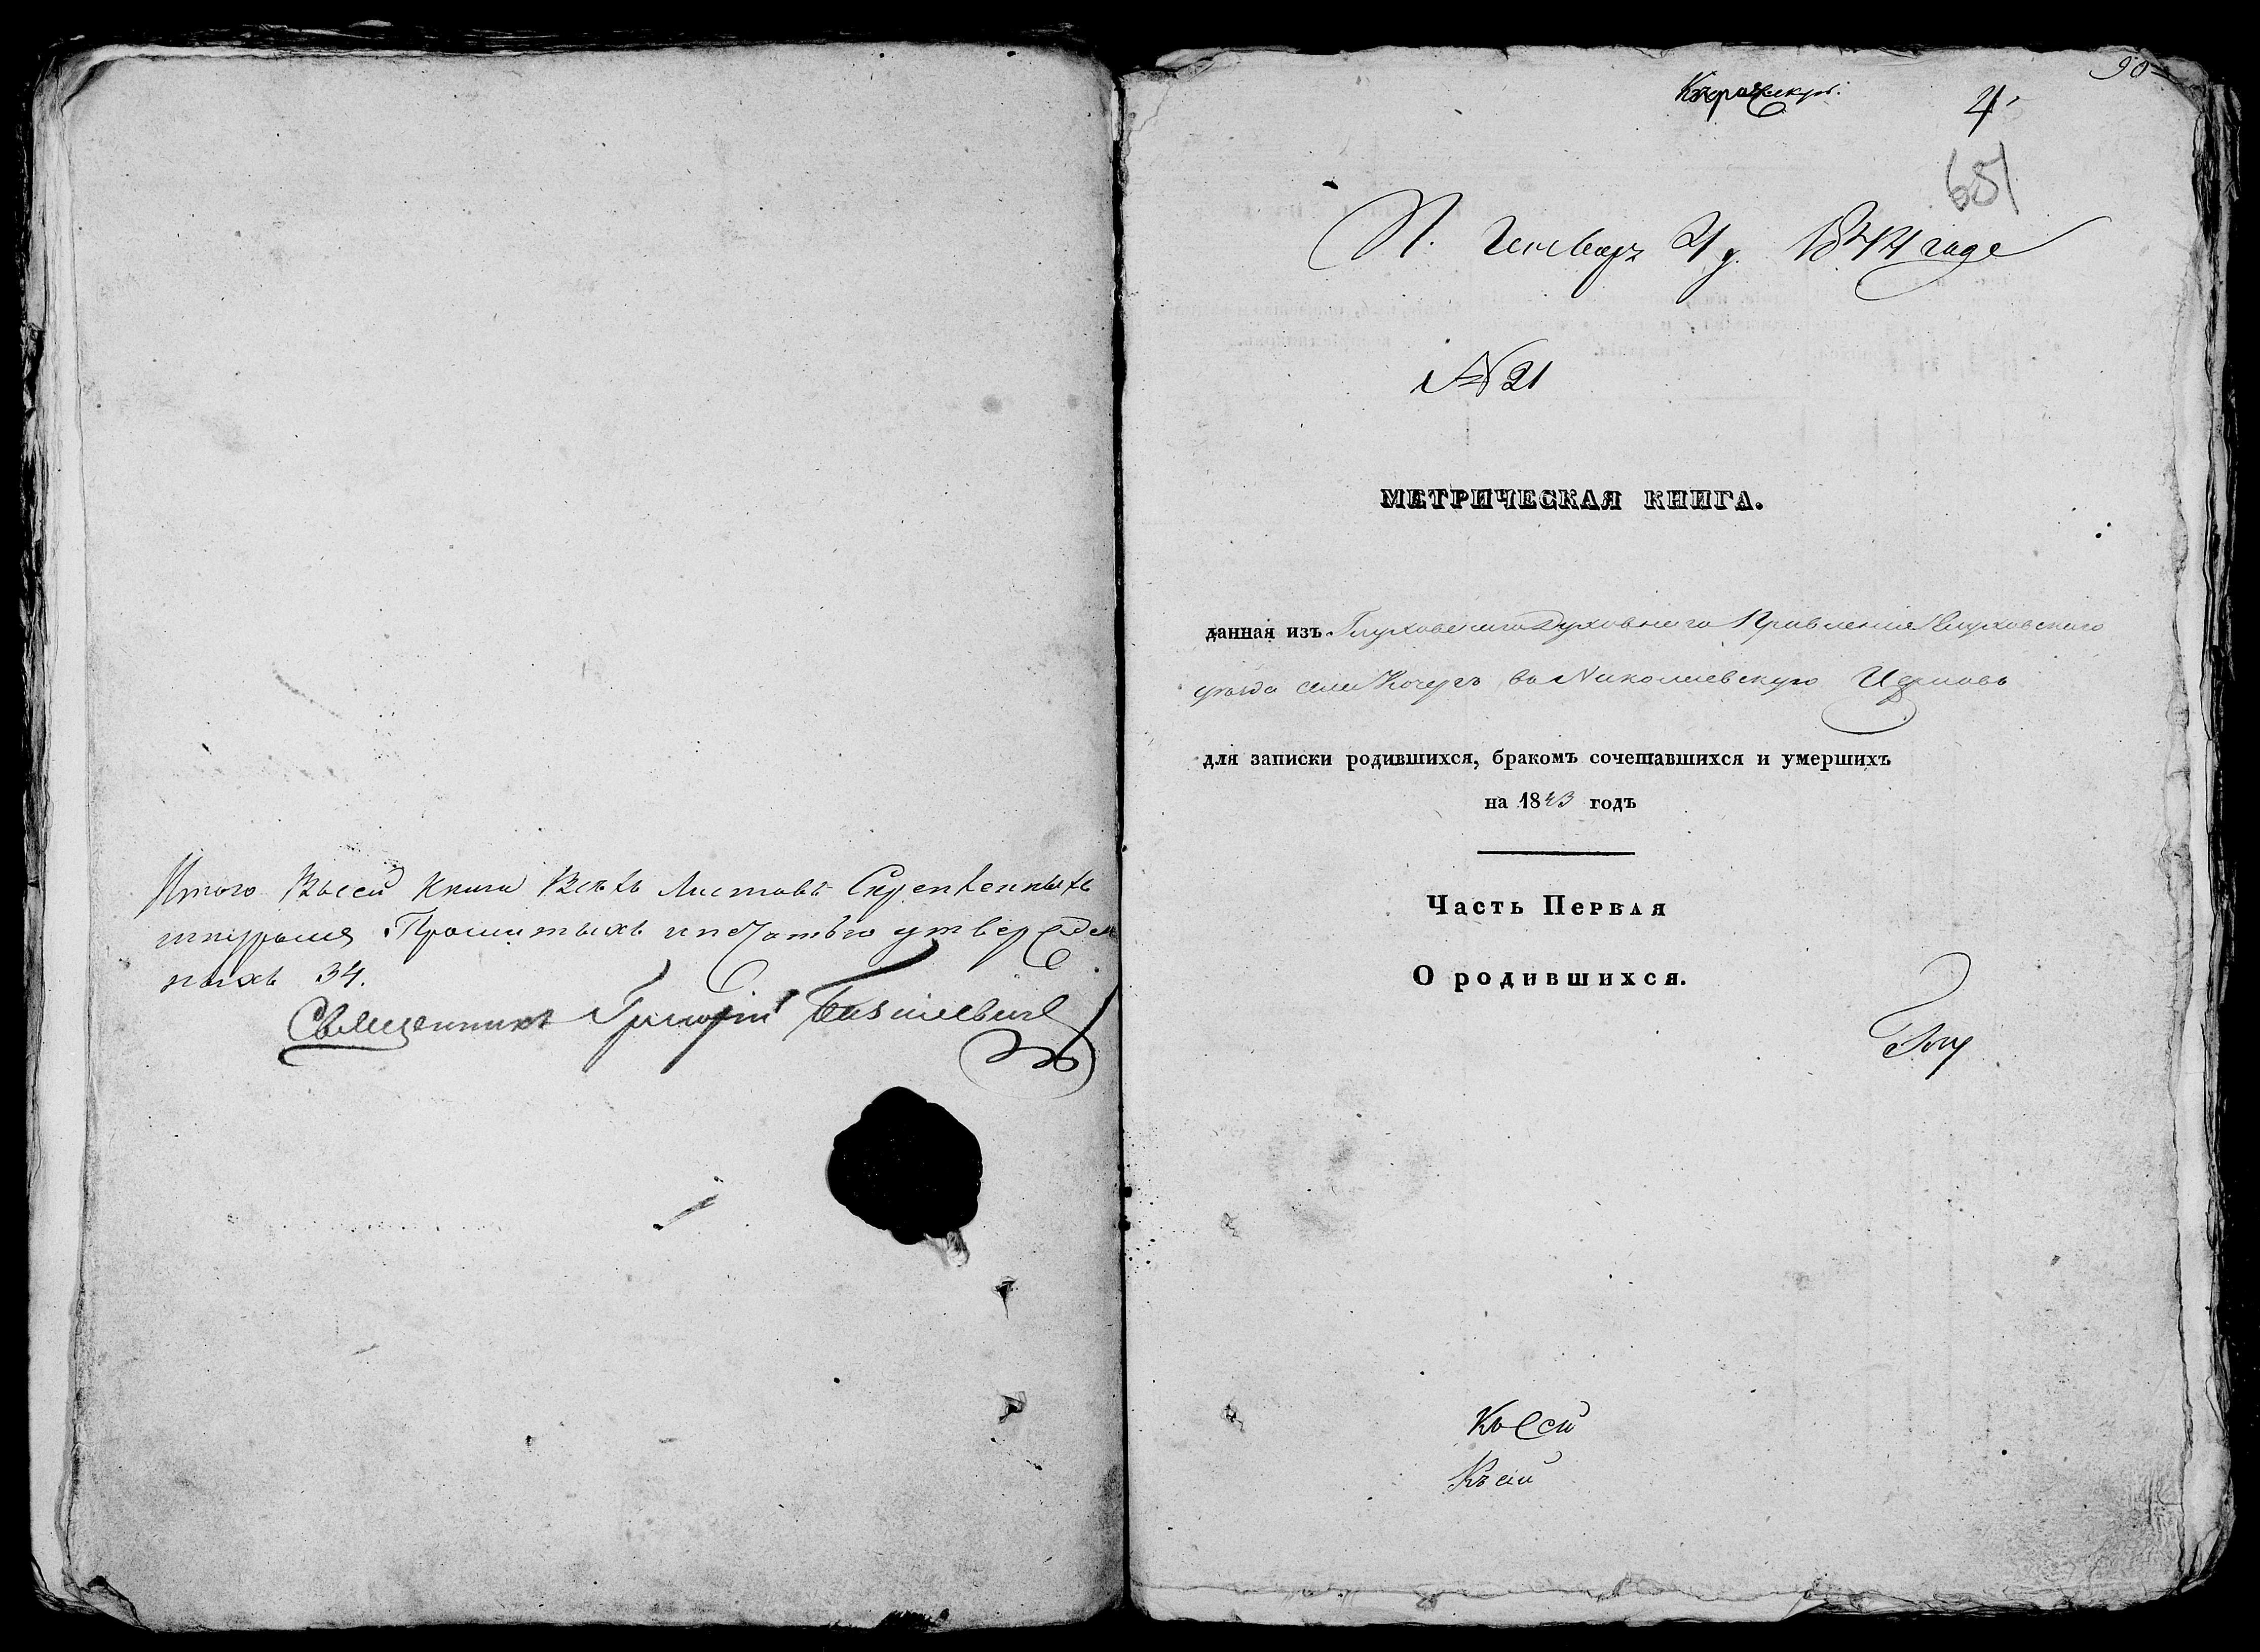 Итого Въсей книги Всѣхъ Листовъ Скрепленныхъ
шнуромъ Прошитыхъ и печатью утвержден
ныхъ 34.
Священникъ Григорій Базилевичъ
90
4
651
П. Генваря 21 д. 1844 года
№ 21
МЕТРИЧЕСКАЯ КНИГА.
данная изъ Глуховского Духовного Правления Глуховского
уезда села Кочергъ въ Николаевскую Церковь
для записки родившихся, бракомъ сочетавшихся и умершихъ
на 1843 годъ
Часть Первая
О родившихся.
Къ Сей
Къ сей